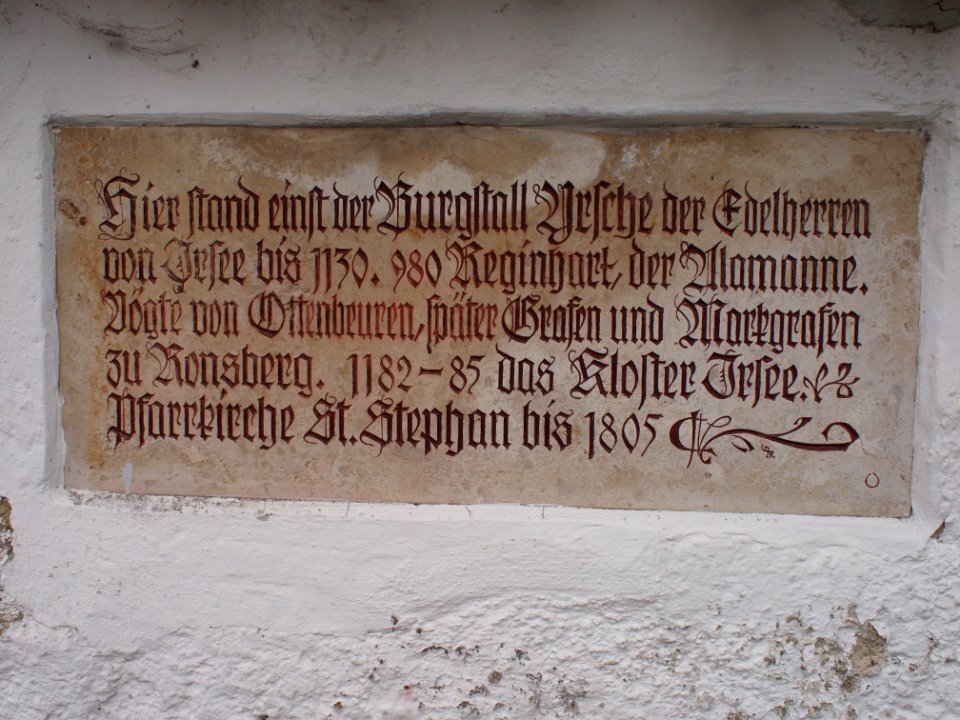 Hier stand einst der Burgstall Yrsche der Edelherren
von Irsee bis 1130. 980 Reginhart, der Alamanne.
Vögte von Ottenbeuren, später Grafen und Markgrafen
zu Ronsberg. 1182-85 das Kloster Irsee.
Pfarrkirche St. Stephan bis 1805